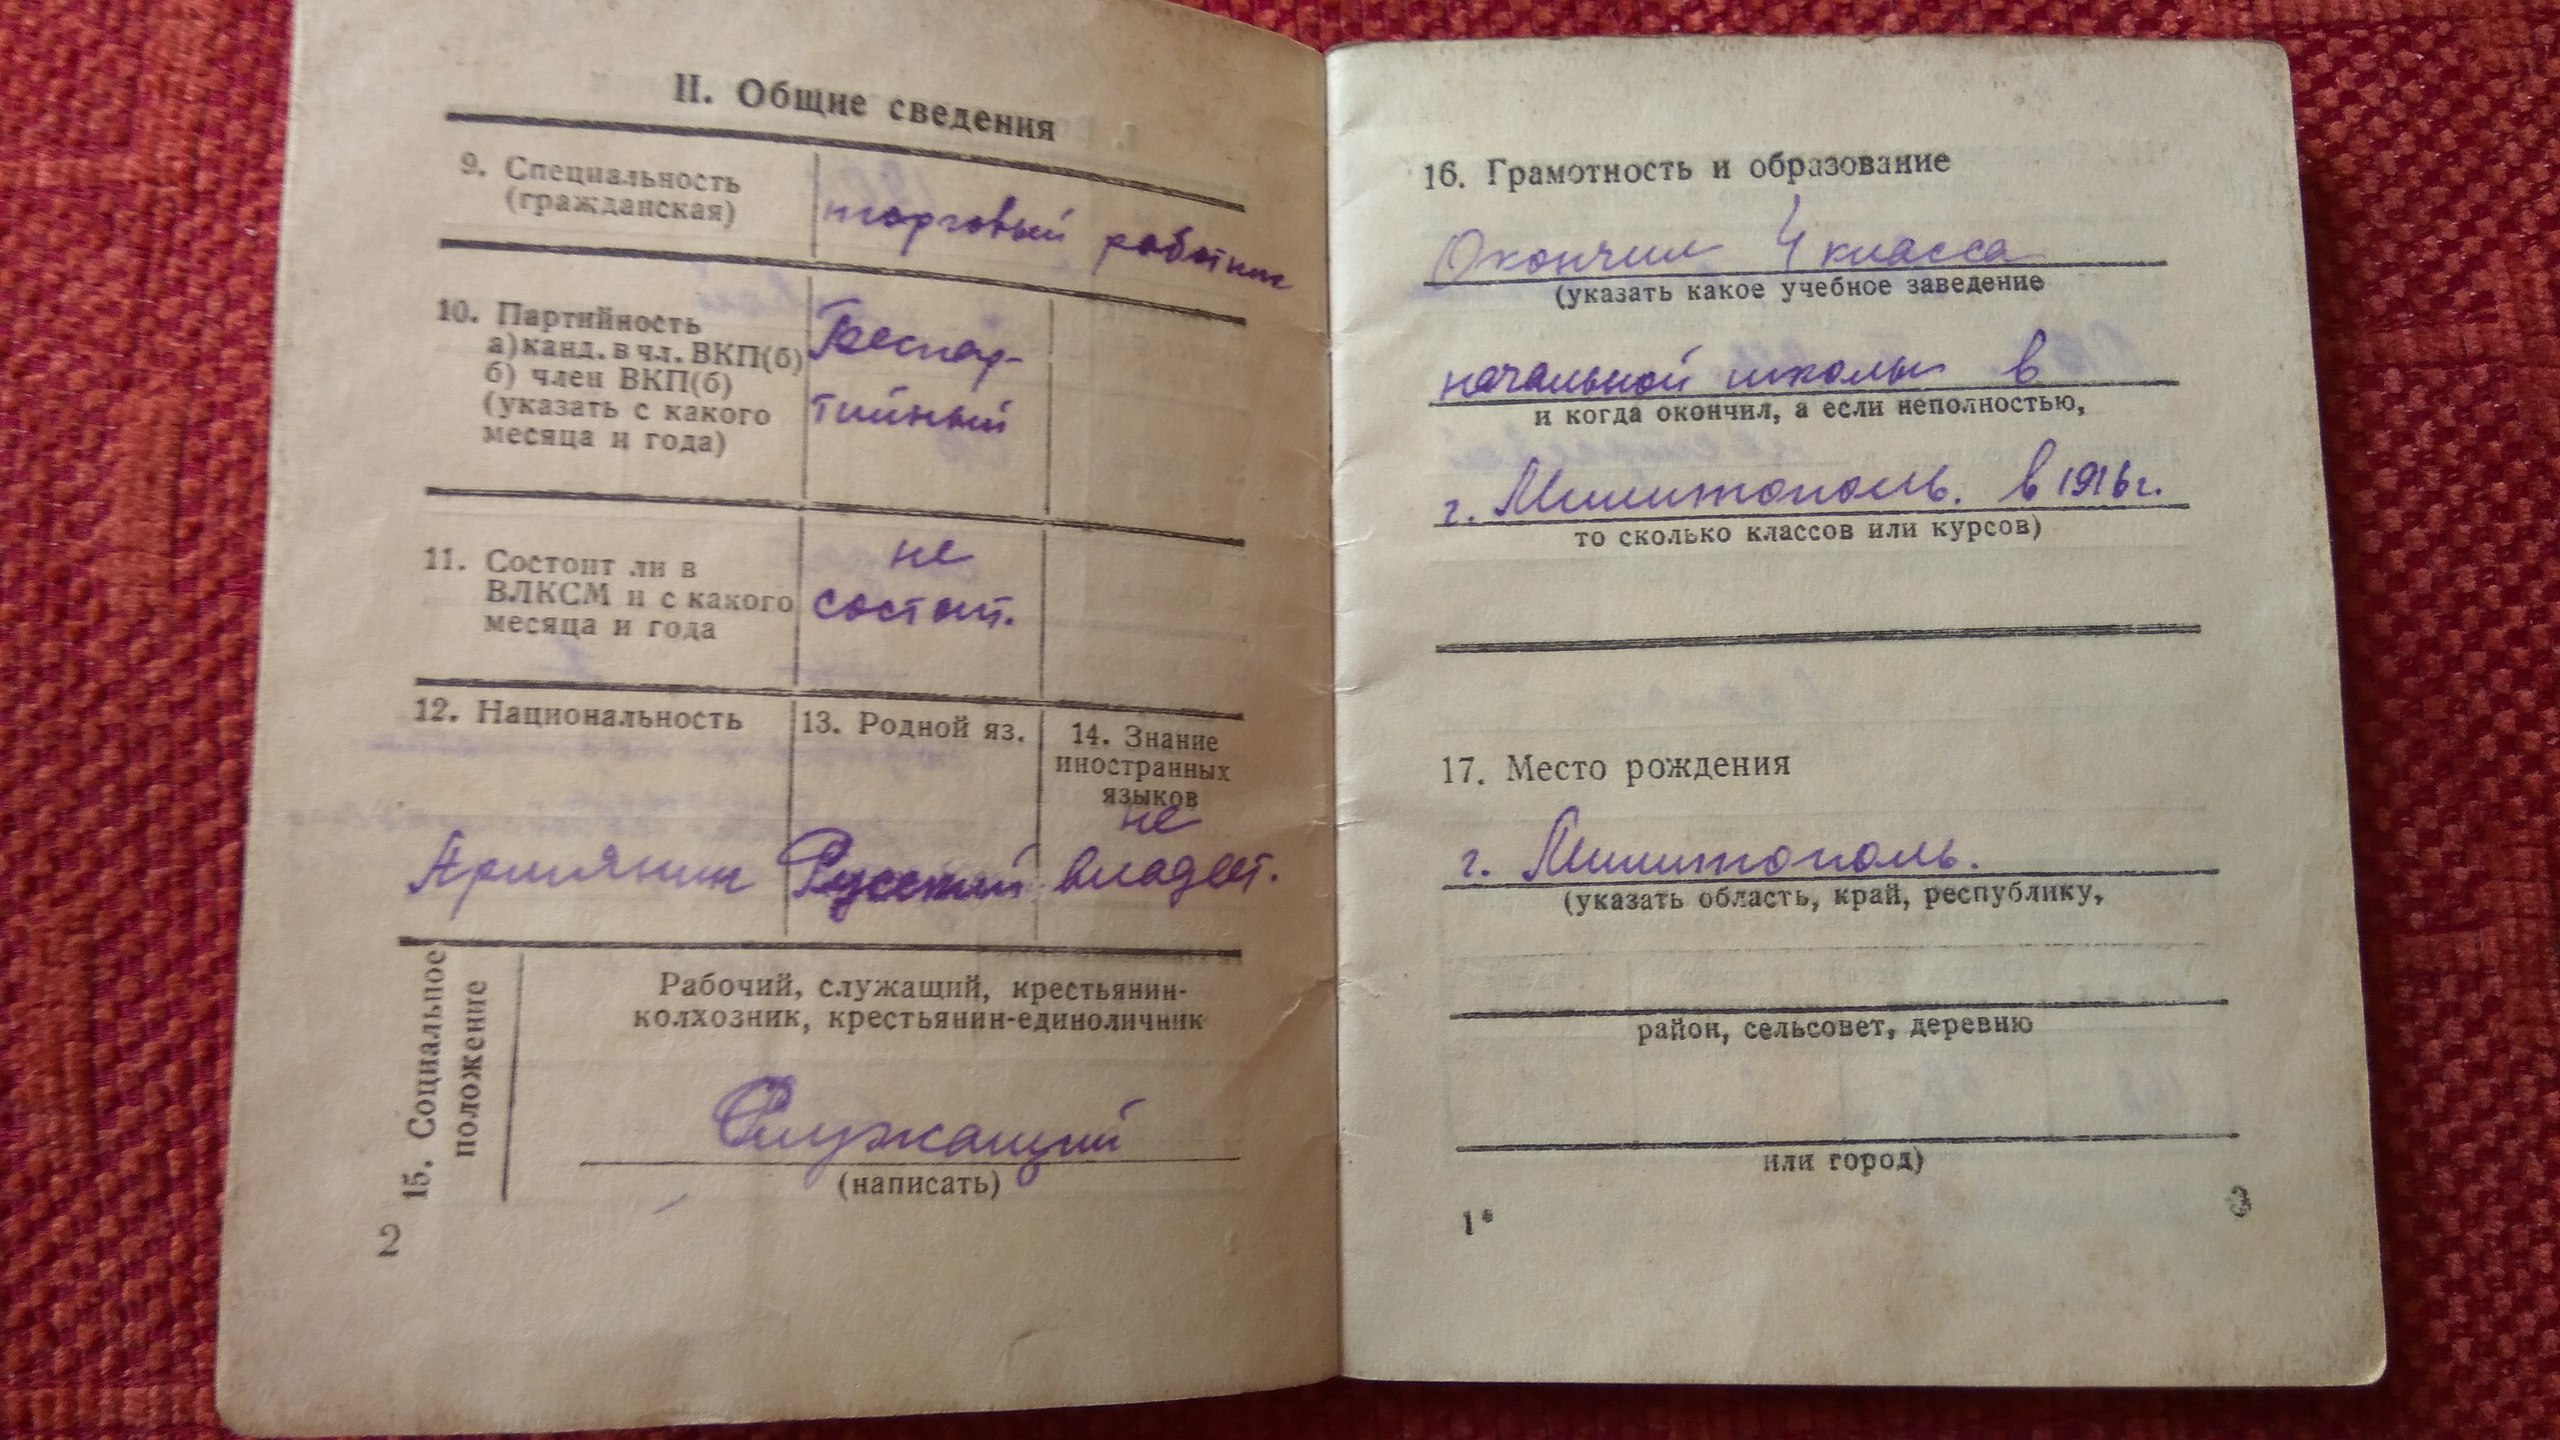 II. Общие сведения
9. Специальность
(гражданская)
торговый работник
10. Партийность
а) канд. в чл. ВКП(б)
б) член ВКП(б)
(указать с какого
месяца и года)
Беспар-
тийный
11. Состоит ли в
ВЛКСМ и с какого
месяца и года
не
состоит.
12. Национальность
Армянин
13. Родной яз.
Русский
14. Знание
иностранных
языков
не
владеет.
15. Социальное
положение
Рабочий, служащий, крестьянин-
колхозник, крестьянин-единоличник
Служащий
(написать)
2
16. Грамотность и образование
Окончил 4 класса
(указать какое учебное заведение
начальной школы в
и когда окончил, а если неполностью,
г. Милитополь. в 1916 г.
то сколько классов или курсов)
17. Место рождения
г. Милитополь.
(указать область, край, республику,
район, сельсовет, деревню
или город)
1*
3